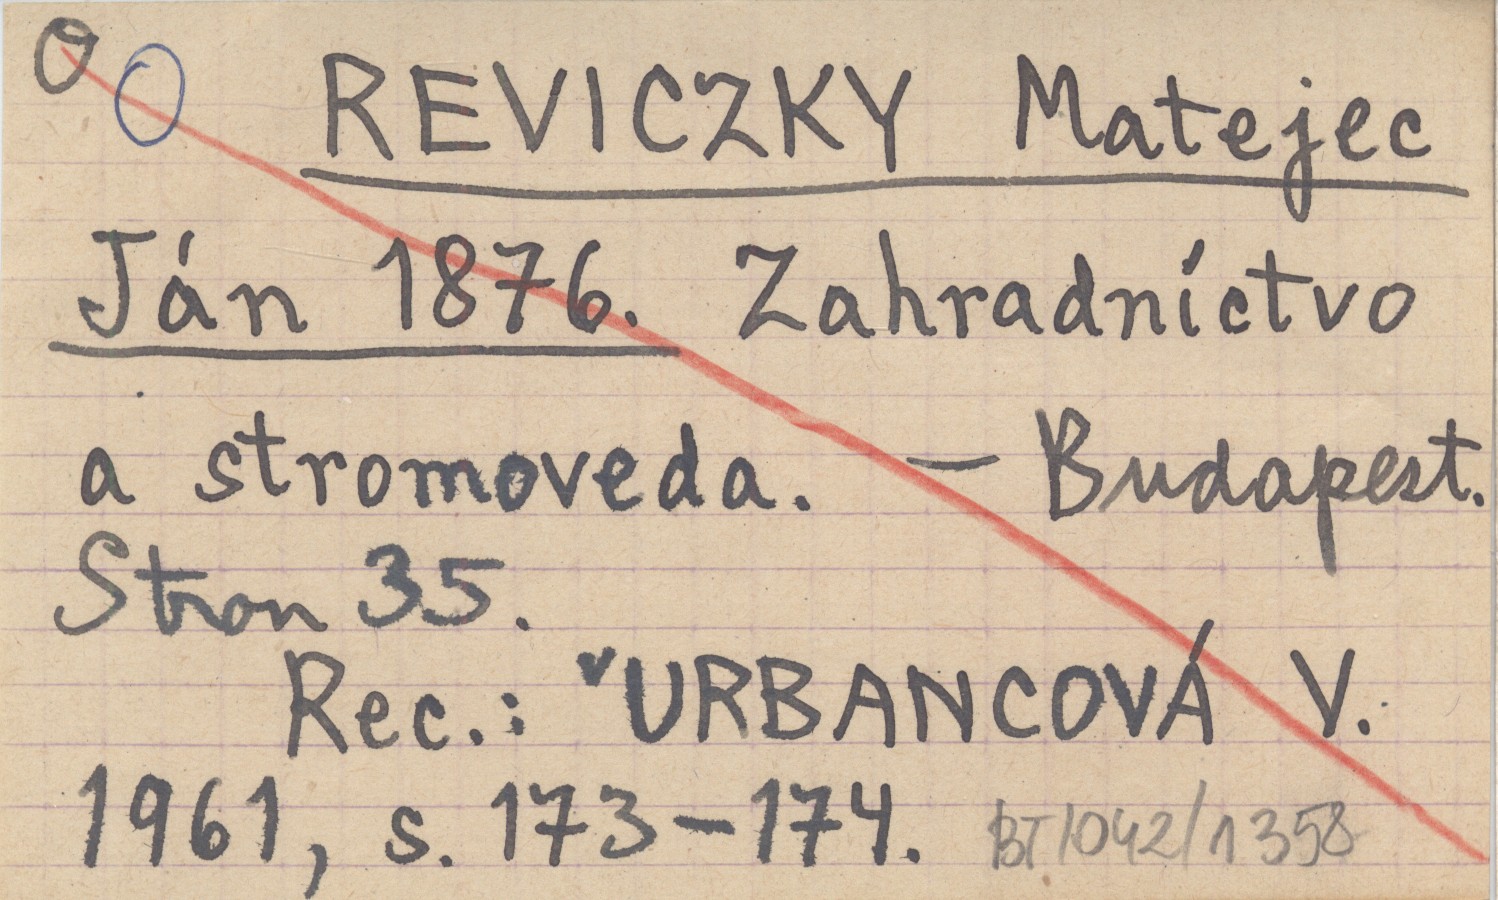 O O REVICZKY Matejec
Ján 1876. Zahradníctvo
a stromoveda. – Budapest.
Stron 35.
Rec.: URBANCOVÁ V.
1961, s. 173–174. BT/042/1358